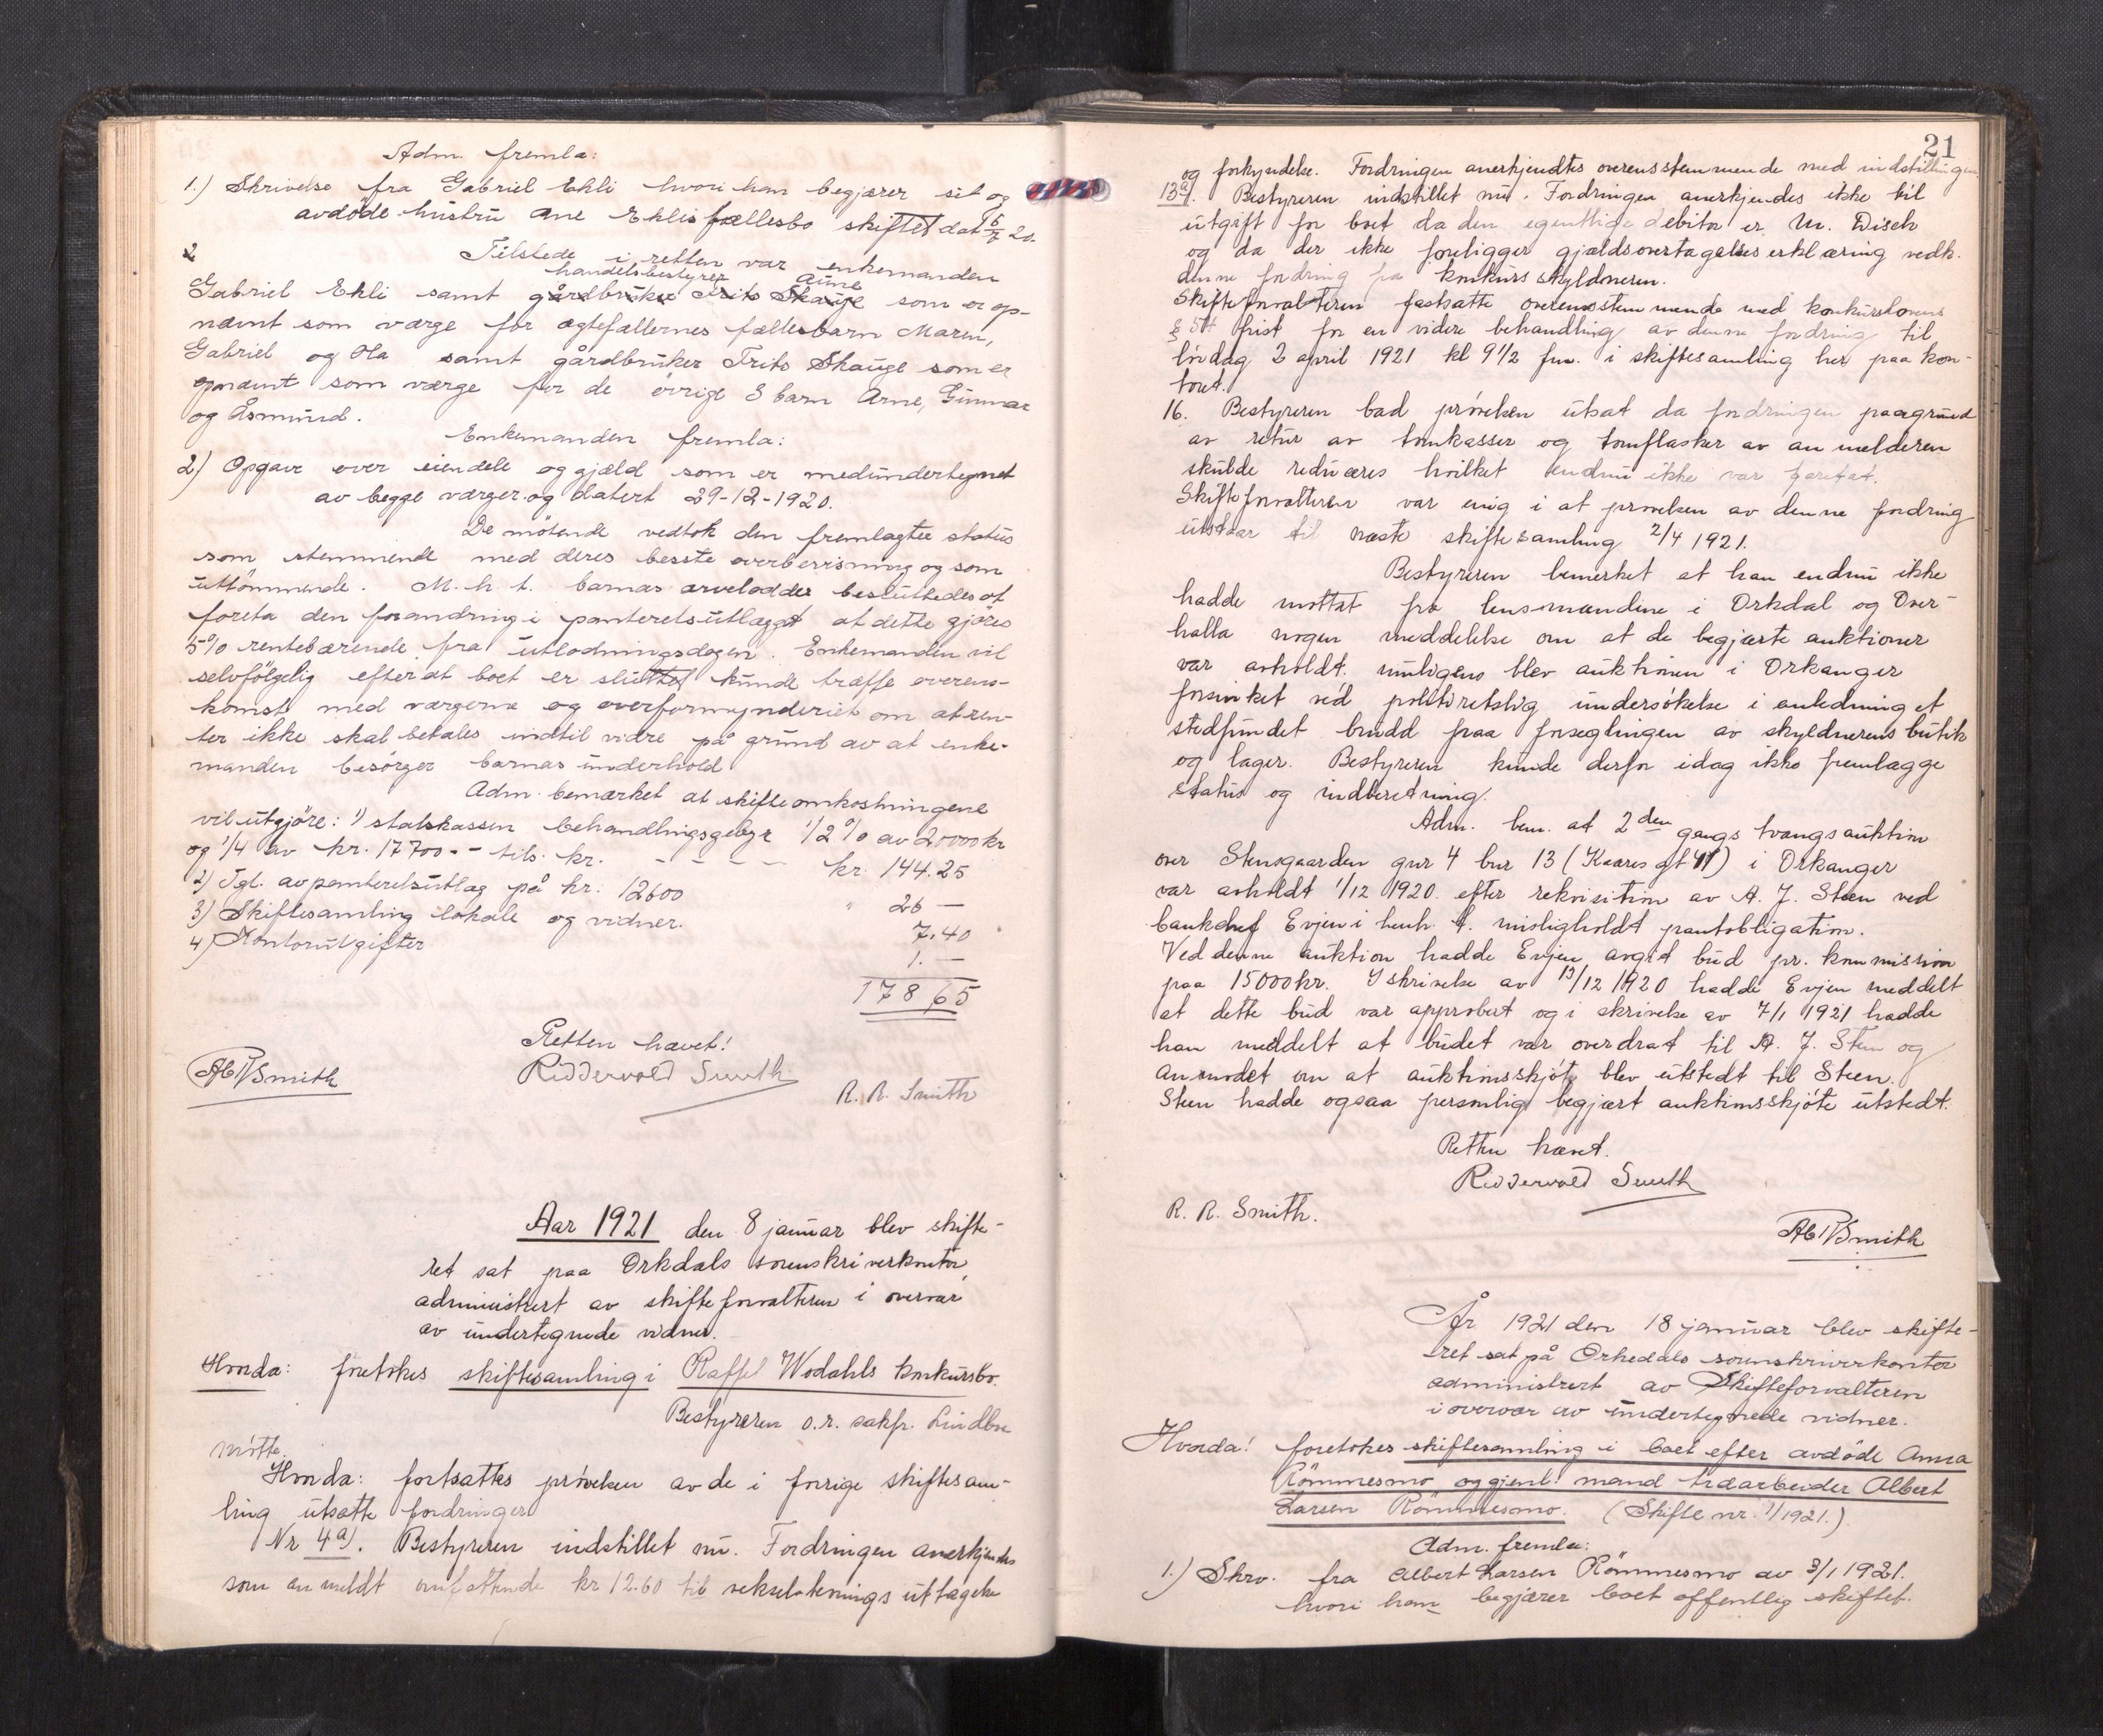 Adm. fremla:
1.) Skrivelse fra Gabriel Ekli hvori han begjærer sit og
avdöde hustru Ane Eklis fællesbo skiftet dat 15/7 20.
2
Tilstede i retten var enkemanden
handelsbestyrer Aune
Gabriel Ekli samt gårdbruker Frits Skauge som er op-
nævnt som værge for ægtefællernes fællesbarn Maren,
Gabriel og Ola samt gårdbruker Frits Skauge som er
opnævnt som værge for de övrige 3 barn Arne, Gunnar
og Åsmund.
Enkemanden fremla:
2) Opgave over eiendele og gjæld som er medundertegnet
av begge værger og datert 29-12-1920.
De mötende vedtok den fremlagte status
som stemmende med deres beste overbevisning og som
uttömmende. M.h.t. barnas arvelodder besluttedes at
foreta den forandring i panteretsutlægget at dette gjöres
5% rentebærende fra utlodningsdagen. Enkemanden vil
selvfölgelig efter at boet er sluttet kunde træffe overens-
komst med værgerne og overformynderiet om at ren-
ter ikke skal betales indtil vidre på grund av at enke-
manden besörger barnas underhold
Adm. bemærket at skifteomkostningene
vil utgjöre: 1) statskassen behandlingsgebyr 1/2 % av 20000 kr
og 1/4 av kr. 17700 -- tils. kr. - - - - kr. 144.25
2) Tgl. av panteretsutlæg på kr. 12600 " 26 —
3) Skiftesamling lokale og vidner. 7.40
4) Kontorutgifter 1. —
178 65
Retten hævet!
Riddervold Smith
R. R. Smith
Aar 1921 den 8 januar blev skifte-
ret sat paa Orkdals sorenskriverkontor
administrert av skifteforvalteren i overvær
av undertegnede vidner.
Hvorda: foretokes skiftesamling i Raffel Wodahls konkursbo.
Bestyreren o.r. sakfr. Lindboe
mötte.
Hvorda: fortsattes prövelsen av de i forrige skiftesam-
ling utsatte fordringer
Nr 4a). Bestyreren indstillet nu. Fordringen anerkjendes
som anmeldt omfattende kr 12.60 til veksel-
21
og forkyndelse. Fordringen anerkjendtes overensstemmende med indstillingen.
13a). Bestyreren indstillet nu. Fordringen anerkjendes ikke til
utgift for boet da den egentlige debitor er M. Disch
og da der ikke foreligger gjældsovertagelseserklæring vedk.
denne fordring fra konkursskyldneren.
Skifteforvalteren fastsatte overensstemmende med konkurslovens
§ frist for en videre behandling av denne fordring til
lördag 2 april 1921 kl 9 1/2 fm. i skiftesamling her paa kon-
toret.
16. Bestyreren bad prövelsen utsat da fordringen paagrund
av retur av tomkasser og tomflasker av anmelderen
skulde reduceres hvilket endnu ikke var foretat.
Skifteforvalteren var enig i at prövelsen av denne fordring
utstaar til næste skiftesamling 2/4 1921.
Bestyreren bemerket at han endnu ikke
hadde mottat fra lensmændene i Orkdal og Over-
halla nogen meddelelse om at de begjærte auktioner
var avholdt. muligens blev auktionen i Orkanger
forsinket ved politiretslig undersökelse i anledning et
stedfundet brudd paa forseglingen av skyldnerens butik
og lager. Bestyreren kunde derfor idag ikke fremlægge
status og indberetning.
Adm. bem. at 2den gangs tvangsauktion
over Stensgaarden gnr 4 bnr 13 (Kaares gt 41) i Orkanger
var avholdt 1/12 1920. efter rekvisition av A. J. Steen ved
bankchef Evjen i henh. t. misligholdt pantobligation.
Ved denne auktion hadde Evjen avgit bud pr. kommission
paa 15000 kr. I skrivelse av 13/12 1920 hadde Evjen meddelt
at dette bud var approbert og i skrivelse av 7/1 1921 hadde
han meddelt at budet var overdrat til A. J. Steen og
anmodet om at auktionsskjöte blev utstedt til Steen.
Steen hadde ogsaa personlig begjært auktionsskjöte utstedt.
Retten hævet.
Riddervold Smith
R. R. Smith.
År 1921 den 18 januar blev skifte-
ret sat på Orkedals sorenskriverkontor
administrert av Skifteforvalteren
i overvær av undertegnede vidner.
Hvorda! foretokes skiftesamling i boet efter avdöde Anna
Römmesmo og gjenl. mand træarbeider Albert
Larsen Römmesmo. (Skifte nr. 1/1921.)
Adm. fremla:
1.) Skrv. fra Albert Larsen Römmesmo av 3/1 1921.
hvori han begjærer boet offentlig skiftet.